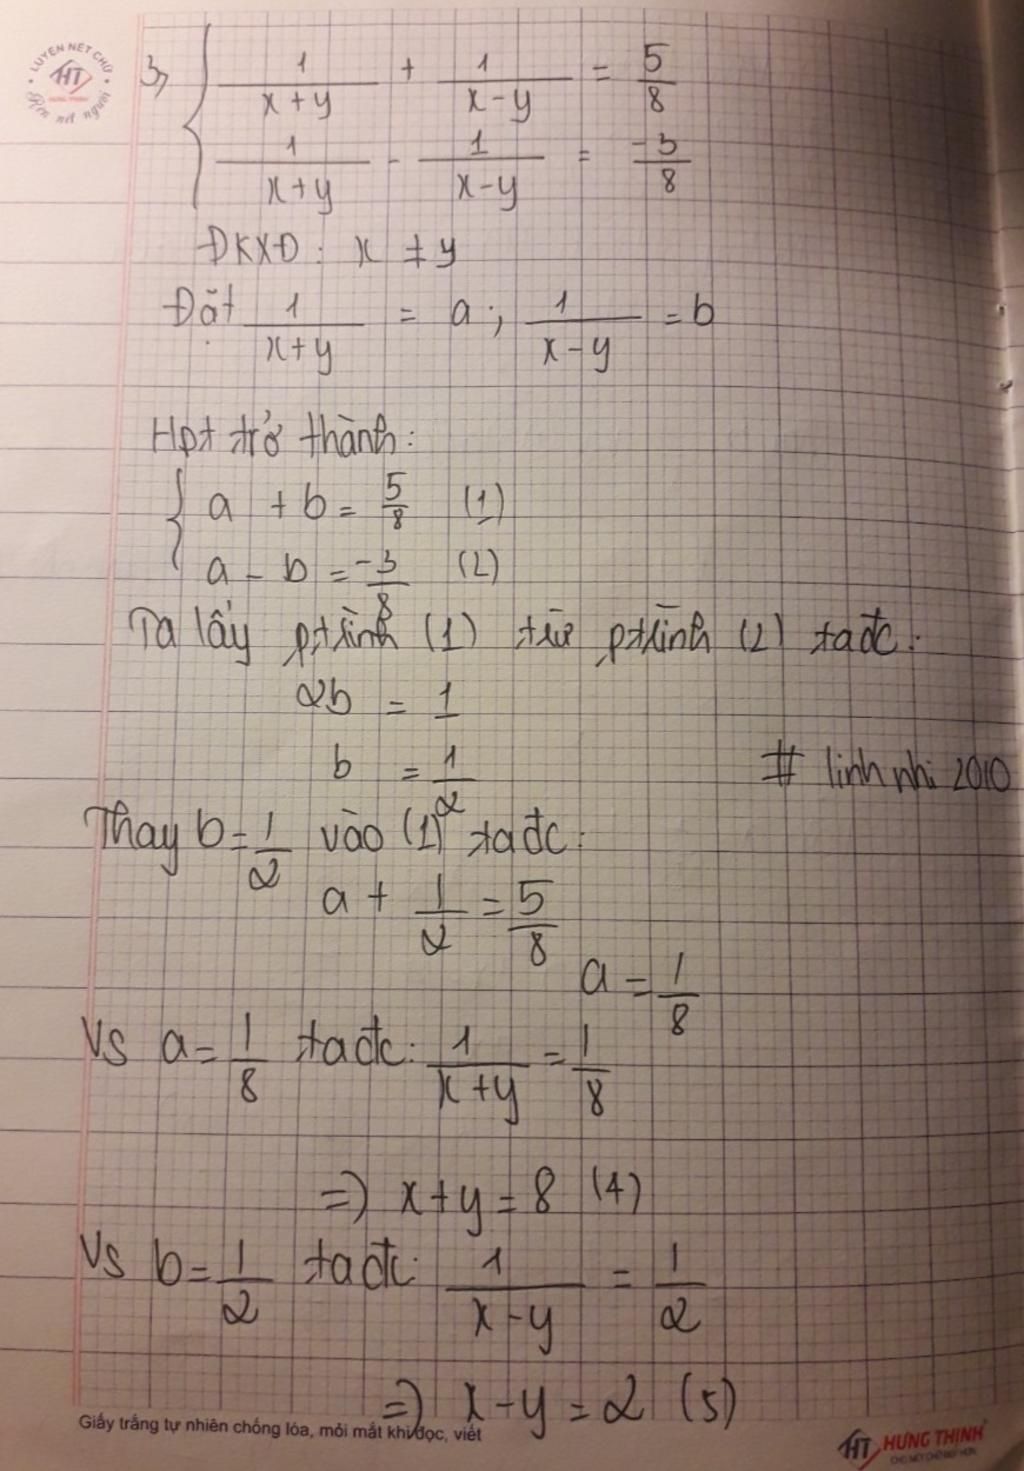 LUYỆN NÉT CHỮ
HT
HƯNG THỊNH
Rèn nết người
3, { 1/(x+y) + 1/(x-y) = 5/8
1/(x+y) - 1/(x-y) = -3/8
ĐKXĐ: x ≠ y
Đặt 1/(x+y) = a; 1/(x-y) = b
Hpt trở thành:
{ a + b = 5/8 (1)
a - b = -3/8 (2)
Ta lấy ptrình (1) trừ ptrình (2) ta đc:
2b = 1
b = 1/2
# linh nhi 2010
Thay b = 1/2 vào (1) ta đc:
a + 1/2 = 5/8
a = 1/8
Vs a = 1/8 ta đc: 1/(x+y) = 1/8
=) x+y = 8 (4)
Vs b = 1/2 ta đc: 1/(x-y) = 1/2
=) x-y = 2 (5)
Giấy trắng tự nhiên chống lóa, mỏi mắt khi đọc, viết
HT HƯNG THỊNH